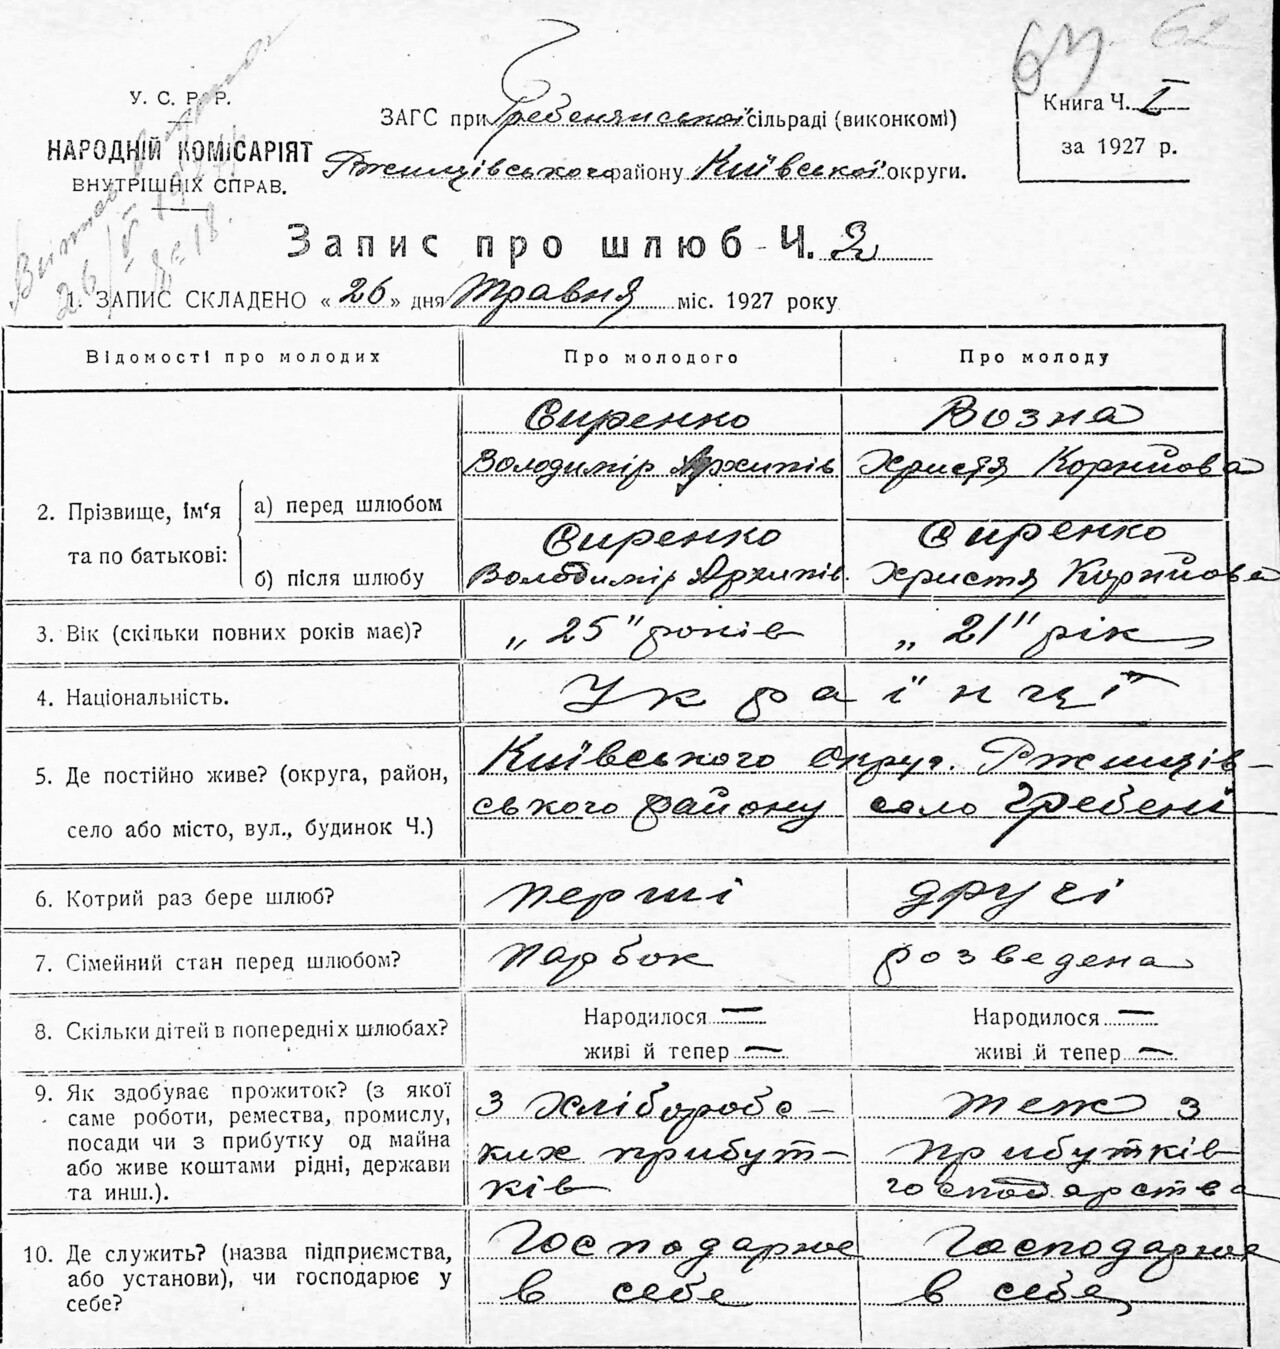 63 62
У. С. Р. Р.
НАРОДНІЙ КОМІСАРІЯТ
ВНУТРІШНІХ СПРАВ.
ЗАГС при Гребенянської сільраді (виконкомі)
Ржищівського району Київської округи.
Книга Ч. I
за 1927 р.
26/V 1927
№ 18.
Запис про шлюб Ч. 2
1. ЗАПИС СКЛАДЕНО «26» дня Травня міс. 1927 року
Відомості про молодих Про молодого Про молоду
2. Прізвище, ім‘я та по батькові:
а) перед шлюбом
Сиренко
Володимір Архипів
Возна
Христя Корнійова
б) після шлюбу
Сиренко
Володимір Архипів.
Сиренко
Христя Корнійова
3. Вік (скільки повних років має)? „25" років „21" рік
4. Національність. Українці
5. Де постійно живе? (округа, район,
село або місто, вул., будинок Ч.)
Київського округ. Ржищів-
ського району село Гребені
6. Котрий раз бере шлюб? перші другі
7. Сімейний стан перед шлюбом? парбок розведена
8. Скільки дітей в попередніх шлюбах?
Народилося —
живі й тепер —
Народилося —
живі й тепер —
9. Як здобуває прожиток? (з якої
саме роботи, ремества, промислу,
посади чи з прибутку од майна
або живе коштами рідні, держави
та инш.).
З хліборобс-
ких прибут-
ків
теж з
прибутків
господарства
10. Де служить? (назва підприємства,
або установи), чи господарює у
себе?
Господарює
в себе
Господарює
в себе